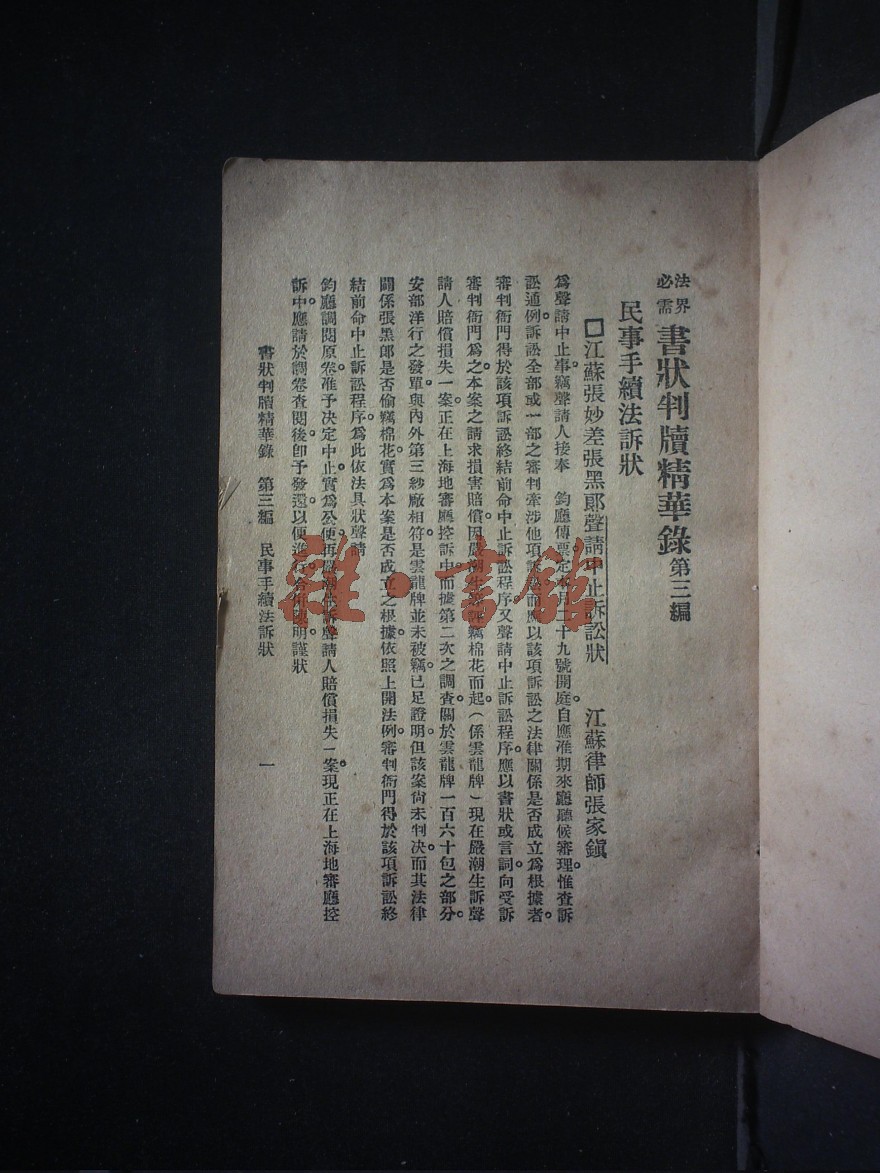 法界必需 書狀判牘精華錄 第三編
民事手續法訴狀
□江蘇張妙差張黑郎聲請中止訴訟狀 江蘇律師張家鎮
爲聲請中止事竊聲請人接奉 鈞廳傳票定本月二十九號開庭自應准期來廳聽候審理。惟查訴
訟通例訴訟全部或一部之審判牽涉他項訴訟而應以該項訴訟之法律關係是否成立爲根據者。
審判衙門得於該項訴訟終結前命中止訴訟程序又聲請中止訴訟程序。應以書狀或言詞向受訴
審判衙門爲之。本案之請求損害賠償。因嚴潮生 竊棉花而起。(係雲龍牌)現在嚴潮生訴聲
請人賠償損失一案。正在上海地審廳控訴中。而據第二次之調查。關於雲龍牌一百六十包之部分。
安部洋行之發單。與內外第三紗廠相符。是雲龍牌並未被竊。已足證明。但該案尙未判决。而其法律
關係張黑郎是否偷竊棉花。實爲本案是否成立之根據。依照上開法例。審判衙門得於該項訴訟終
結前命中止訴訟程序。爲此依法具狀聲請
鈞廳調閱原卷。准予决定中止。實爲公便。再嚴潮生訴聲請人賠償損失一案。現正在上海地審廳控
訴中。應請於調卷查閱後。卽予發還。以便進行。合併陳明。謹狀
書狀判牘精華錄 第三編 民事手續法訴狀 一
雜·書館